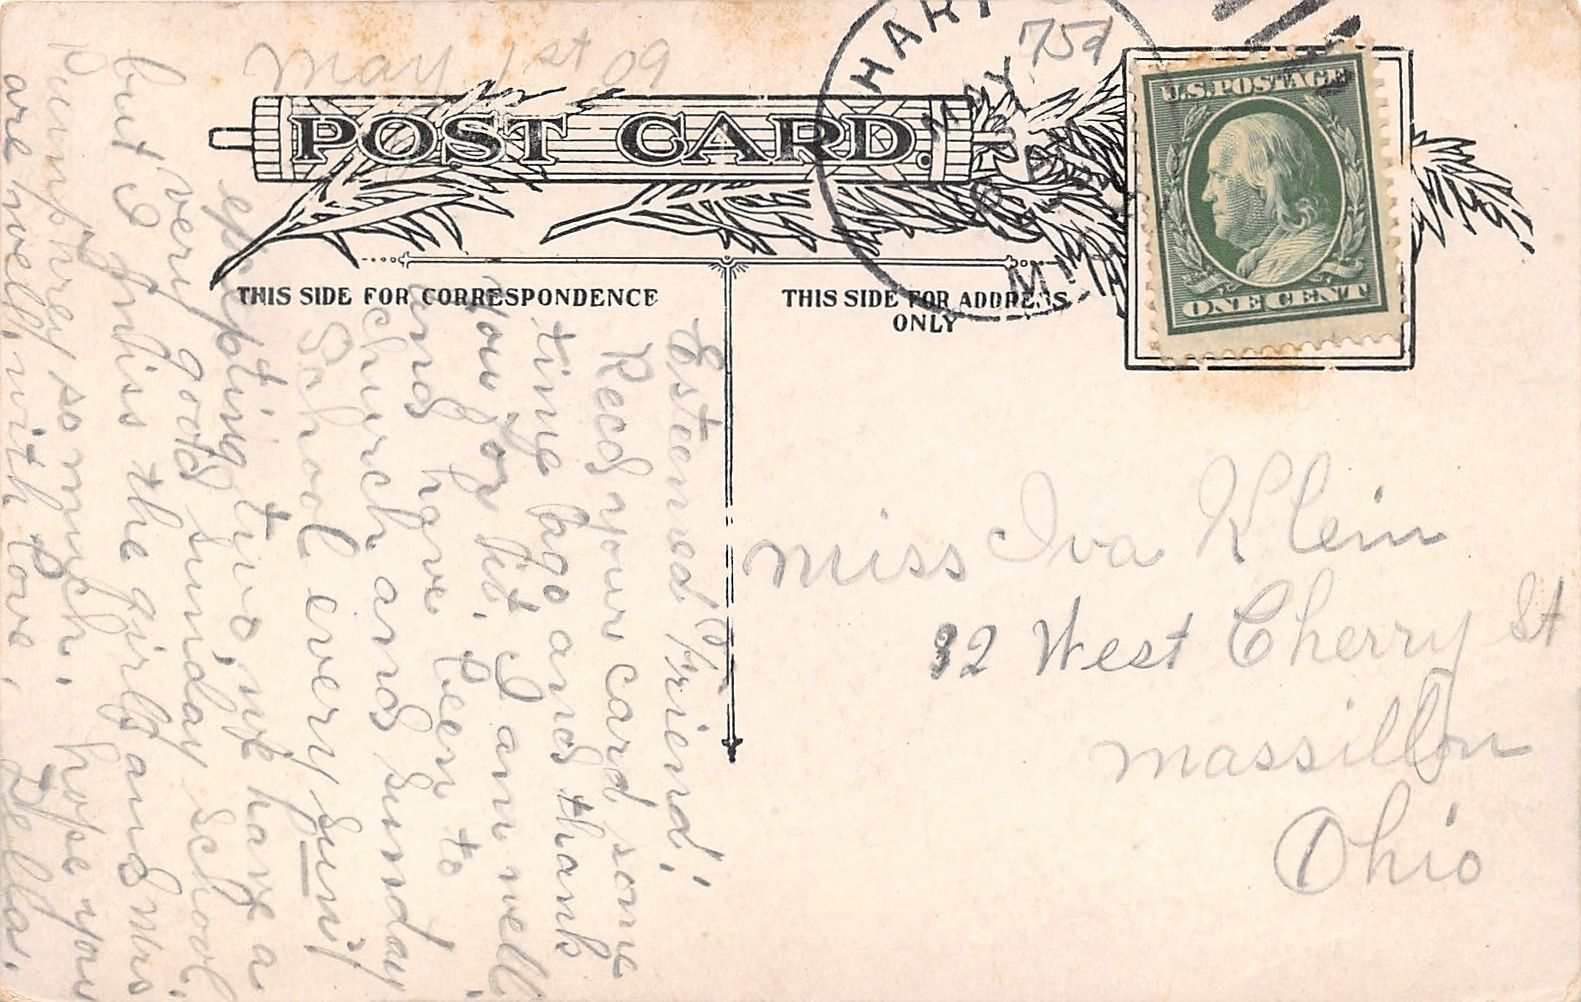 May 1st 09
POST CARD.
THIS SIDE FOR CORRESPONDENCE
THIS SIDE FOR ADDRESS
ONLY
HAR
MAY
8
AM
MICH
75d
U.S. POSTAGE
ONE CENT
Miss Iva Klein
82 West Cherry St
Massillon
Ohio
Esteemed Friend:
Recd your card some
time ago and thank
you for it. I am well
and have been to
church and Sunday
School every Sun,
excepting two, we have a
very good Sunday school,
but I miss the girls and Mrs
Pumphrey so much. hope you
are well, with love, Della.